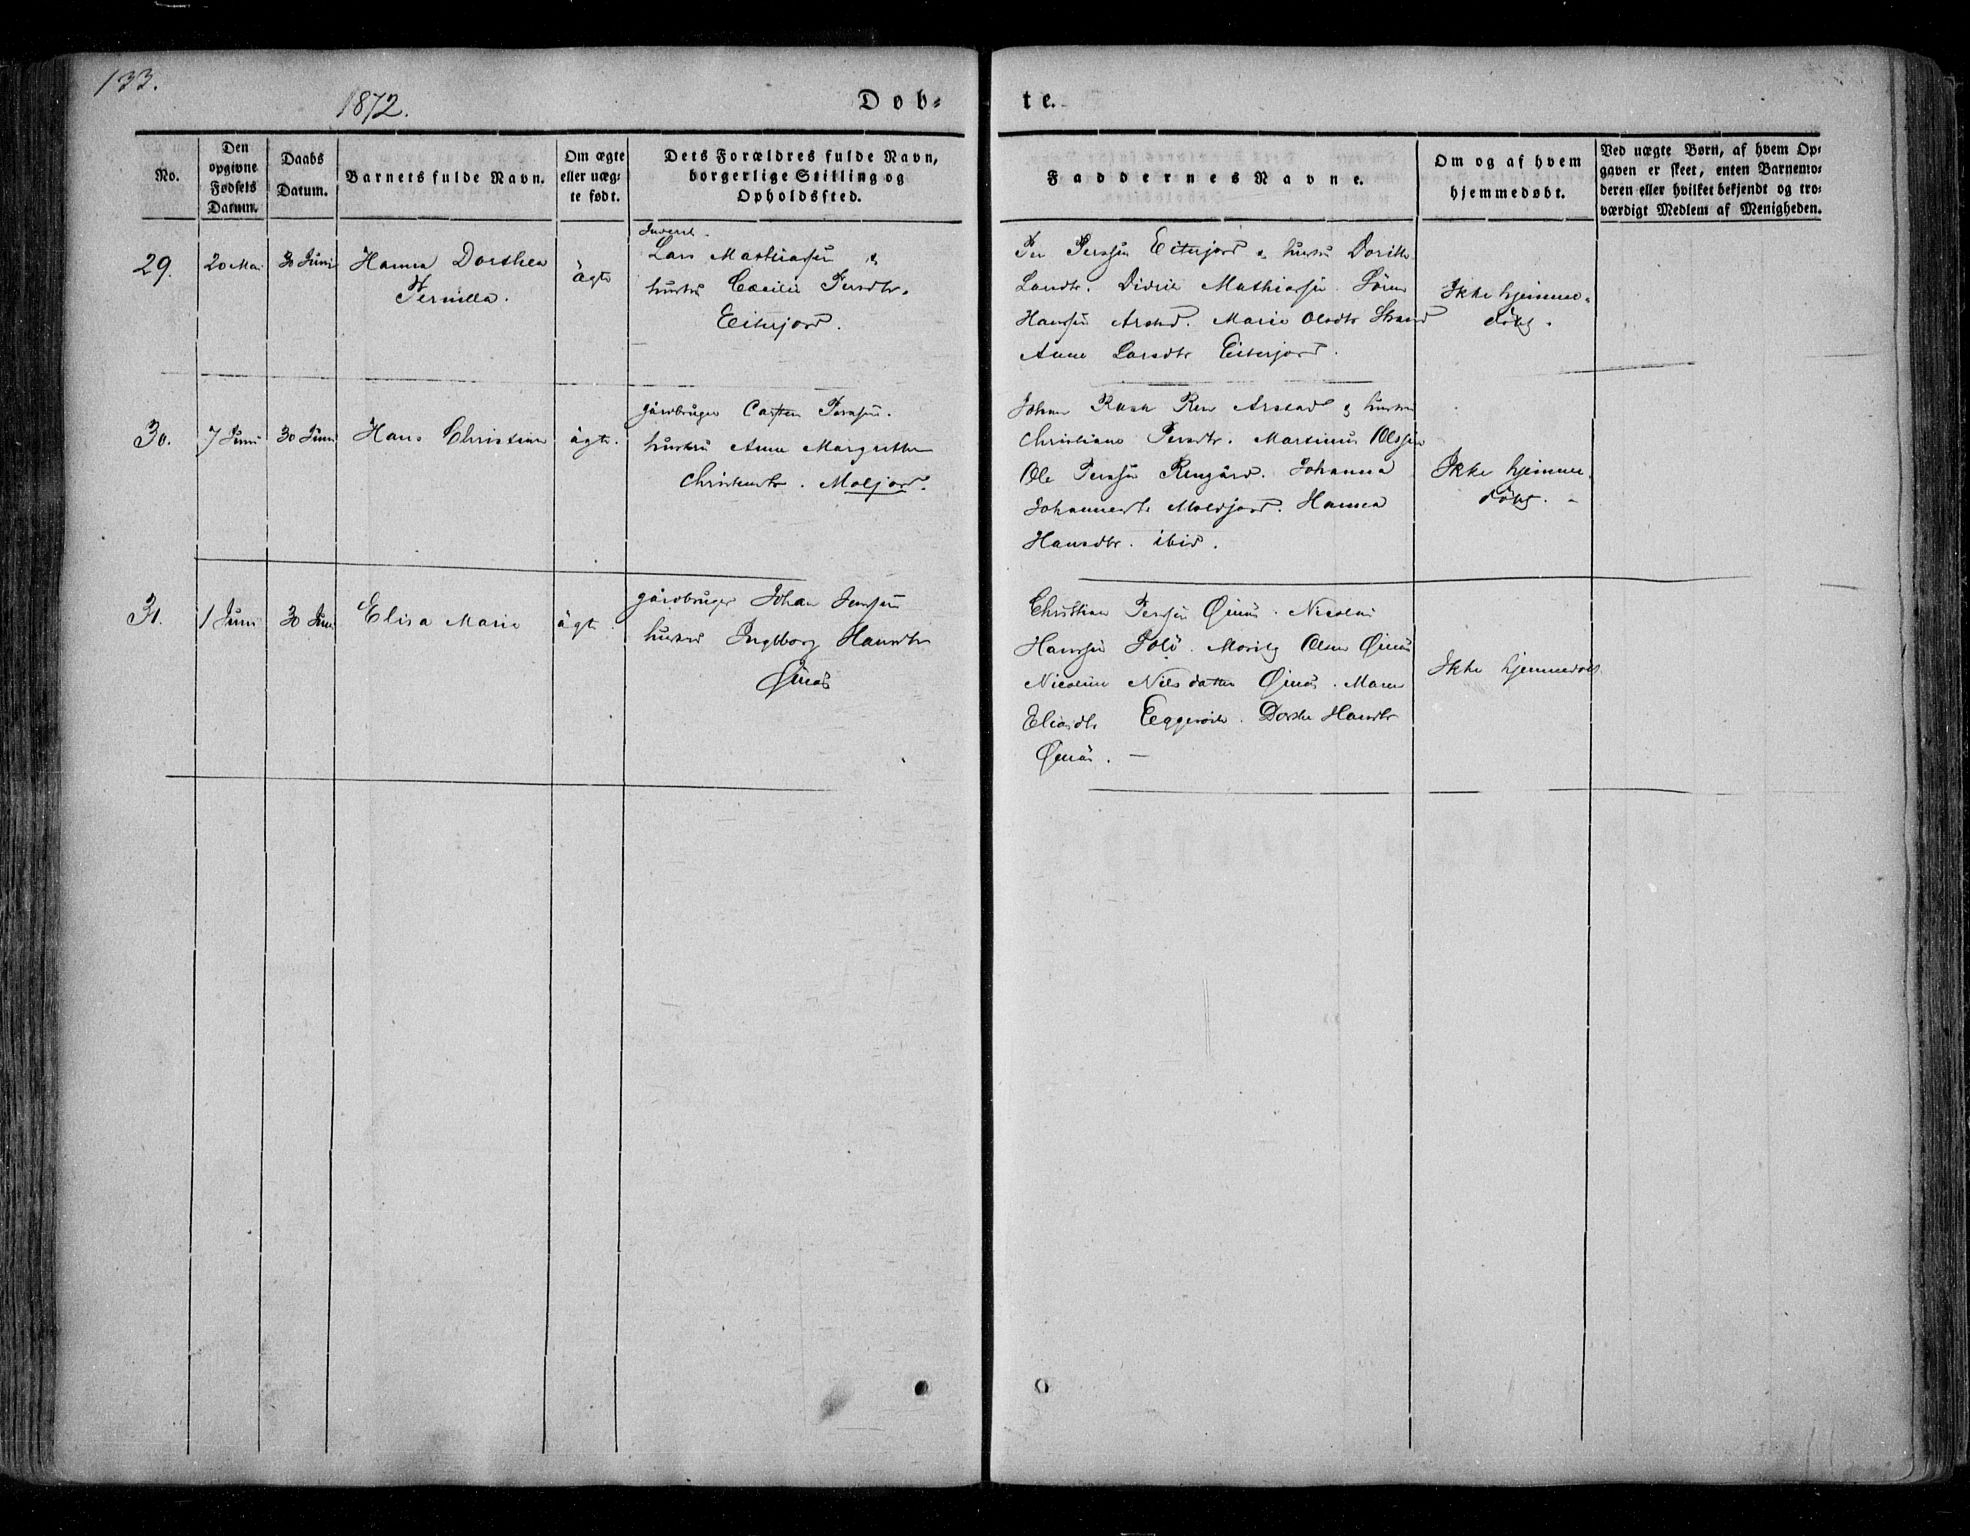 133.
1872.
Døb-
te.
No.
Den opgivne Fødsels Datum.
Daabs Datum.
Barnets fulde Navn.
Om ægte eller uægte født.
Dets Forældres fulde Navn,
borgerlige Stilling og
Opholdssted.
Faddernes Navne.
Om og af hvem
hjemmedøbt.
Ved uægte Børn, af hvem Op-
gaven er skeet, enten Barnemo-
deren eller hvilket bekjendt og tro-
værdigt Medlem af Menigheden.
29. 20 Mai 30 Juni Hanna Dorthea
Pernilla.
ägte
Inderst.
Lars Mathiassen &
hustru Cæcilie Persdtr.
Eiterjord.
Per Perssen Eiterjord & hustru Dorthe
Larsdtr. Didrik Mathiassen. Sören
Hanssen Arstad. Marie Olsdtr Strand
Anne Larsdtr Eiterjord.
Ikke hjemme-
döbt.
30. 7 Juni 30 Juni Hans Christian ägte.
gårdbruger Carsten Perssen.
hustru Anne Margrethe
Christensdtr. Moljord.
Johan Rask Ren Arstad & hustru
Christiane Persdtr. Martinus Olssen
Ole Perssen Rengård. Johanna
Johannesdtr Moldjord. Hanna
Hansdtr. ibid.
Ikke hjemme
döbt. -
31. 1 Juni 30 Juni Elisa Marie ägte
gårdbruger Johan Jenssen
hustru Ingeborg Hansdtr
Öinäs
Christian Perssen Öinäs. Nicolai
Hanssen Solö. Moritz Olsen Öinäs
Nicoline Nilsdatter Öinäs. Maren
Eliasdtr Eggesvik. Dorthe Hansdtr
Öinäs. —
Ikke hjemmedöbt.